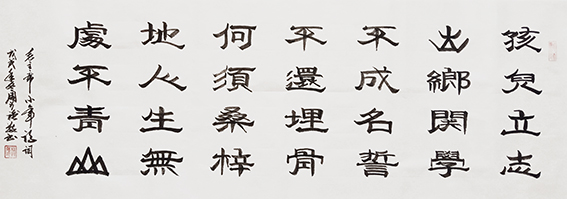 孩兒立志
出鄉關學
不成名誓
不還埋骨
何須桑梓
地人生無
處不青山
毛主席少年詩詞
戊戌年冬